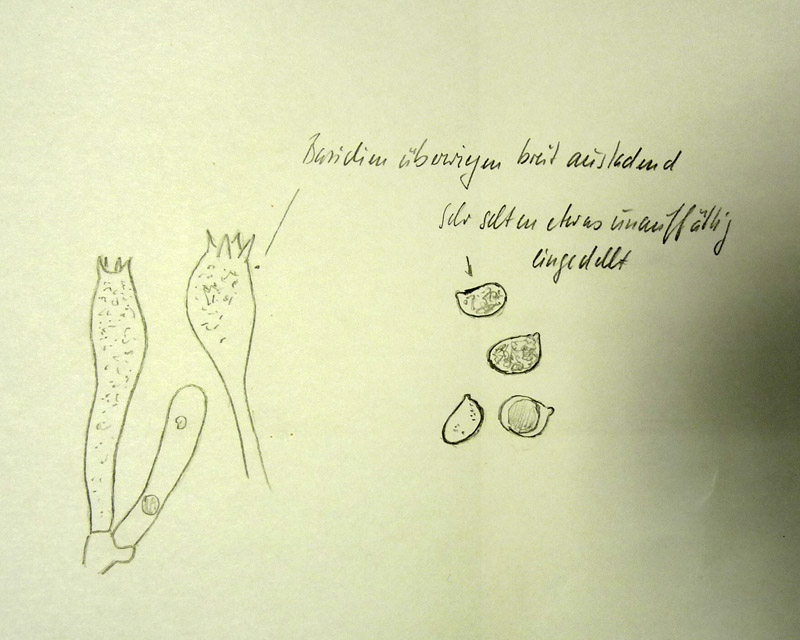 Basidien überwiegen breit ausladend
Sehr selten etwas unauffällig
eingedellt